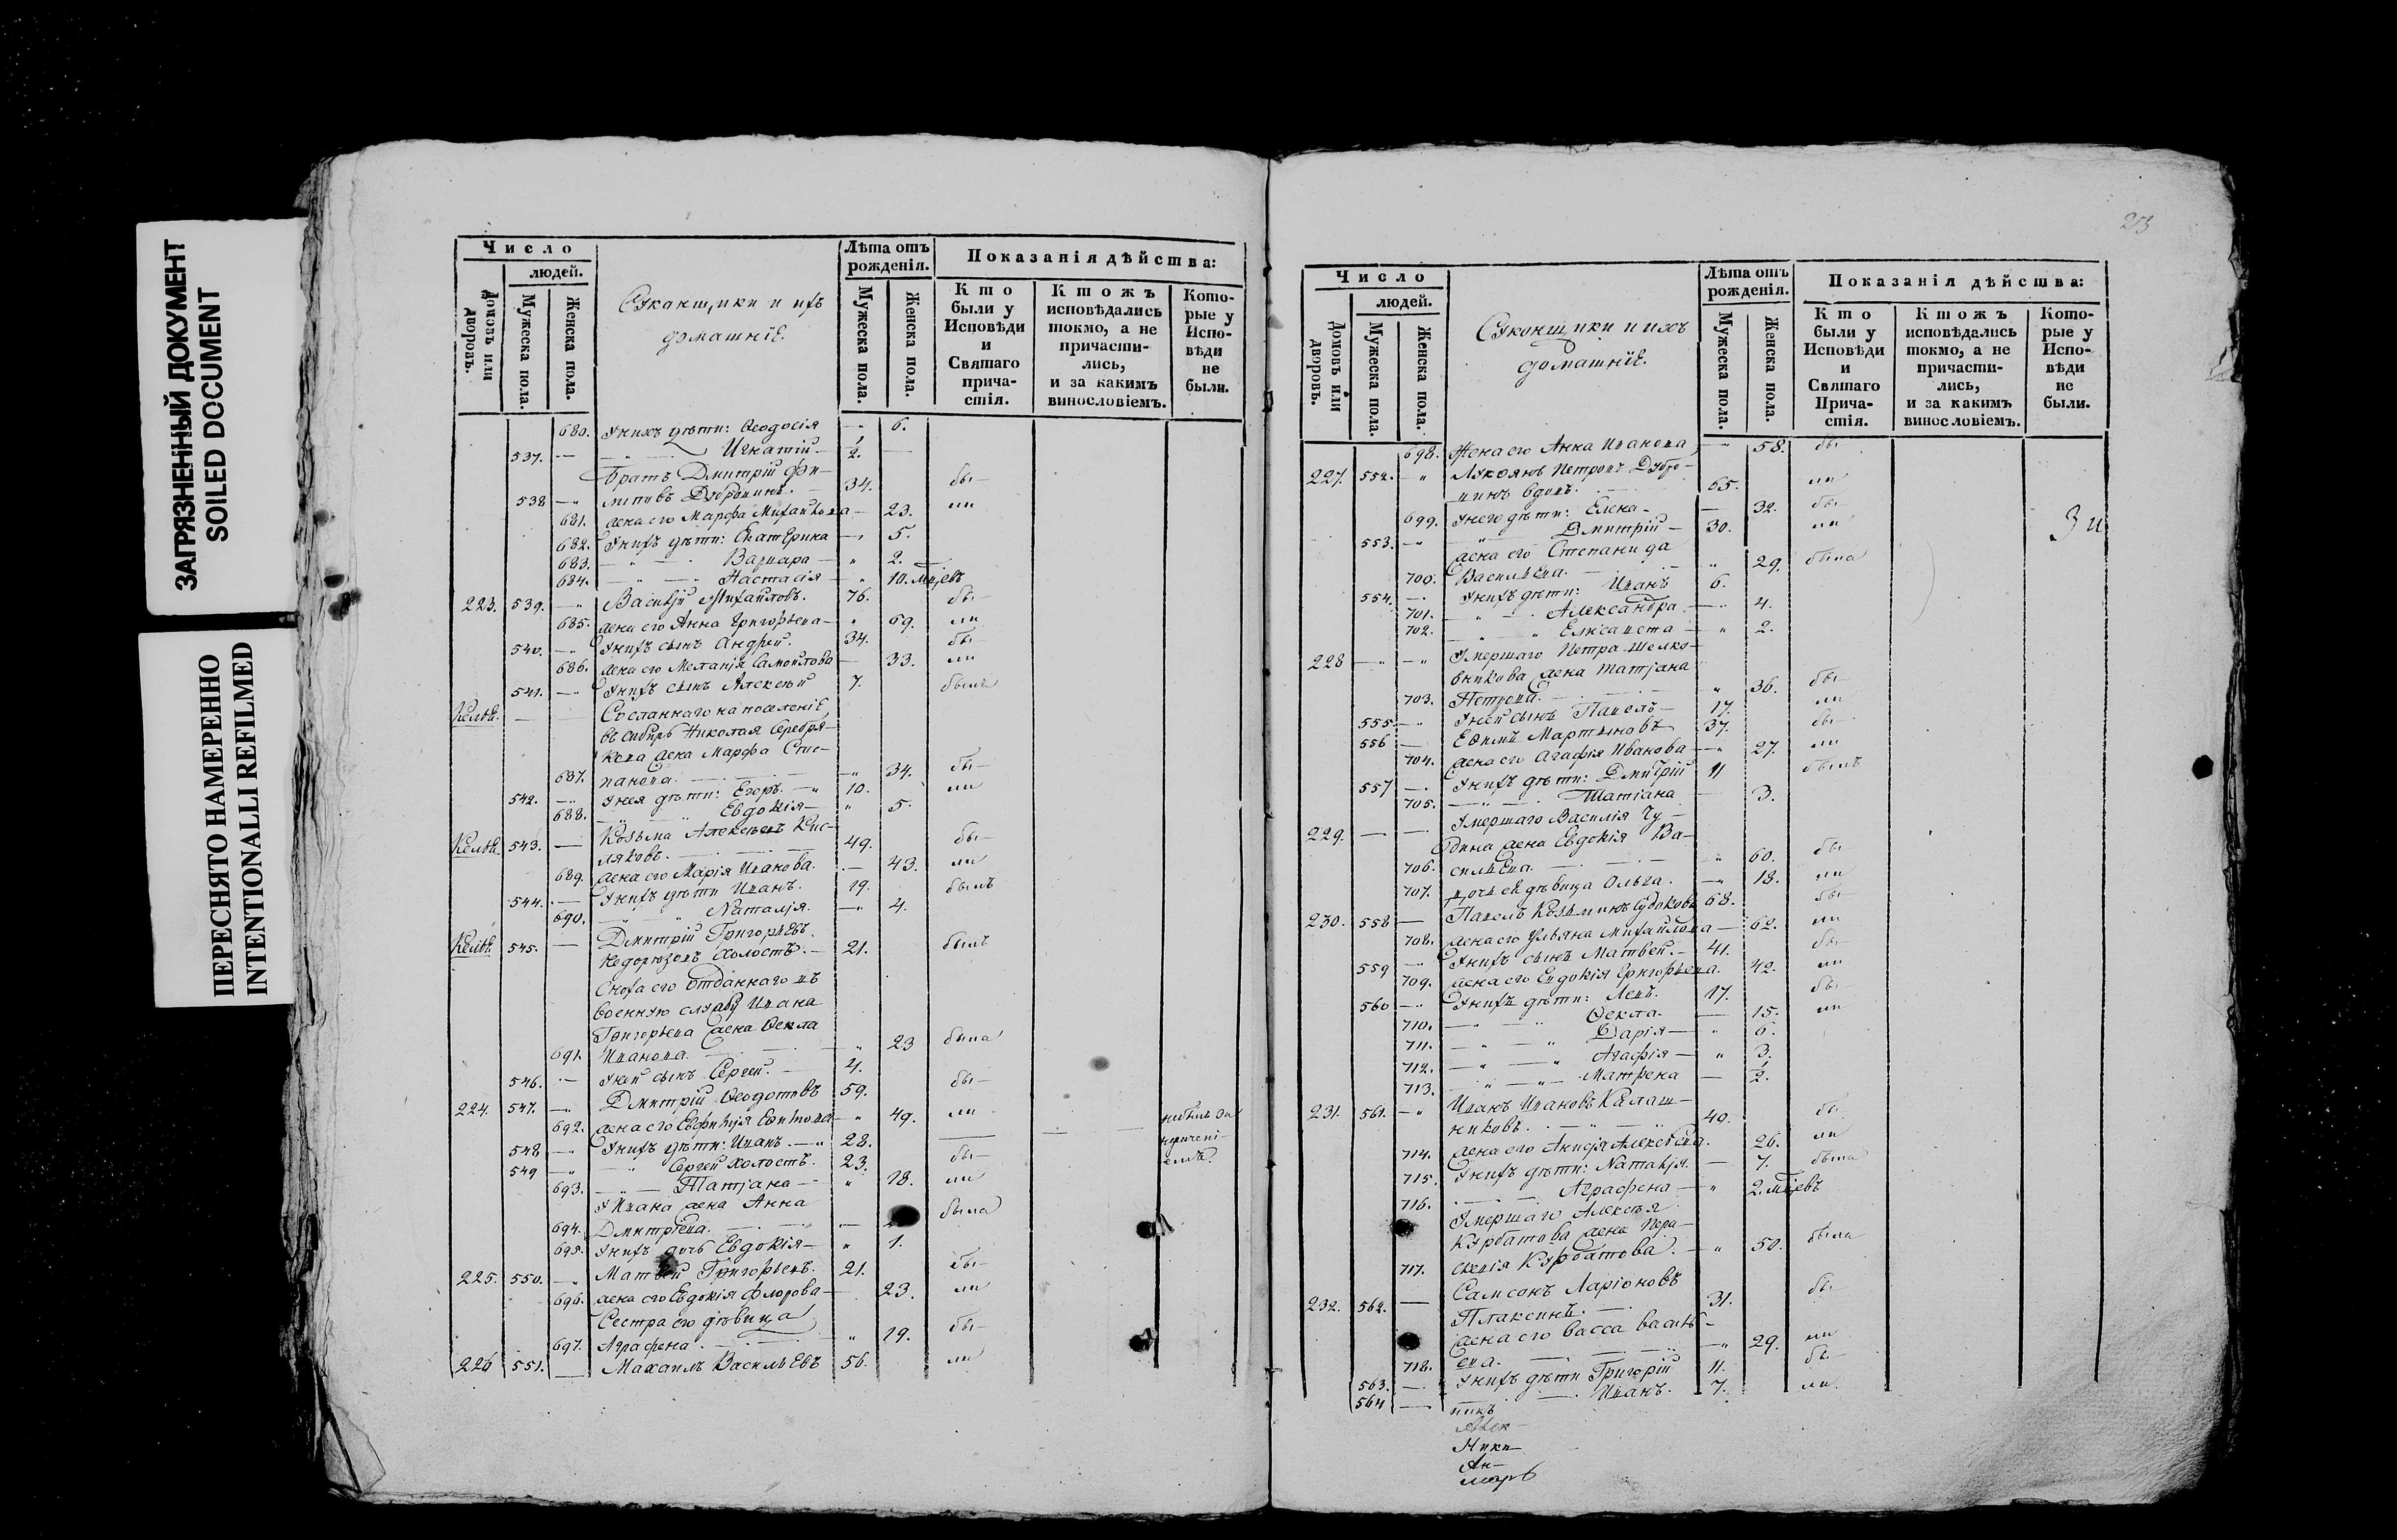 ЗАГРЯЗНЕННЫЙ ДОКУМЕНТ
SOILED DOCUMENT
ПЕРЕСНЯТО НАМЕРЕННО
INTENTIONALLI REFILMED
Число
людей.
Домовъ или дворовъ.
Мужеска пола.
Женска пола.
Суконщики и ихъ
домашнїе.
Лѣта отъ рожденія.
Мужеска пола.
Женска пола.
Показанія дѣйства:
Кто были у Исповѣди и Святаго прича-стія.
Ктожъ исповѣдались токмо, а не причасти-лись, и за какимъ винословіемъ.
Кото-рые у Испо-вѣди не были.
680. У нихъ дѣти: Ѳеодосія — 6.
537. — Игнатій — ½.
Братъ Дмитрій Фи-
538 — липовъ Дубровинъ. 34. бы—
681. жена его Марфа Михайлова — 23. ли
682. У нихъ дѣти: Екатерина — 5.
683. — Варвара — 2.
684. — Настасія — 10. мцевъ
223. 539. — Василій Михайловъ. 76. бы—
685. жена его Анна Григорьева — 69. ли
540. — У нихъ сынъ Андрей. 34. бы—
686. жена его Меланія Самойлова — 33. ли
541. — У нихъ сынъ Алексѣй 7. былъ
Кельѣ. — Сосланнаго на поселеніе
въ сибирь Николая Серебря-
кова жена Марфа Сте-
687. панова. — 34. бы—
542. — У нея дѣти: Егоръ. — 10. ли
688. — Евдокія — 5.
Кельѣ. 543. — Козьма Алексѣевъ Кис-
ляковъ. — 49. бы—
689. жена его Марія Иванова. — 43. ли
544. — У нихъ дѣти Иванъ. 19. былъ
690. — Наталія. — 4.
Кельѣ. 545. — Дмитрій Григорьевъ
холостъ. — 21. былъ
Сноха его отданнаго въ
военную службу Ивана
Григорьева жена Ѳекла
691. Иванова. — 23 была
546. — У ней сынъ Сергей. — 4.
224. 547. — Дмитрій Ѳеодотовъ 59. бы—
692. жена его — 49. ли
548 — У нихъ дѣти: Иванъ. — 28.
549 — Сергей холостъ. 23. бы—
693. — Татіана — 18. ли
У Ивана жена Анна
694. Дмитріева. — была
695. У нихъ дочь Евдокія — 1.
225. 550. — Матвѣй Григорьевъ. 21. бы—
696. жена его Евдокія Флорова — 23. ли
Сестра его дѣвица
697. Аграфена. — 19. бы—
226 551. — Михаилъ Васильевъ 56. ли
Число
людей.
Домовъ или дворовъ.
Мужеска пола.
Женска пола.
Суконщики и ихъ
домашнїе.
Лѣта отъ рожденія.
Мужеска пола.
Женска пола.
Показанія дѣйства:
Кто были у Исповѣди и Святаго Прича-стія.
Ктожъ исповѣдались токмо, а не причасти-лись, и за какимъ винословіемъ.
Кото-рые у Испо-вѣди не были.
698. Жена его Анна Иванова — 58. бы—
227. 552. — Лукоянъ Петровъ Дубро-
винъ вдовъ. 65. ли
699. У него дѣти: Елена — 32. бы—
553. — Дмитрій — 30. ли
жена его Степанида
700. Васильева. — 29. была
554. — У нихъ дѣти: Иванъ 6.
701. — Александра — 4.
702. — Елисавета — 2.
228 — Умершаго Петра Шелко-
вникова жена Татіана
703. Петрова. — 36. бы—
555 — У ней сынъ Павелъ — 17. ли
556 — Ефимъ Мартыновъ 37. бы—
704. жена его Агафія Иванова — 27. ли
557 — У нихъ дѣти: Дмитрій 11 былъ
705. — Татіана — 3.
229. — Умершаго Василія Чу-
дина жена Евдокія Ва-
706. сильева. — 60. бы—
707. дочь ея дѣвица Ольга. — 18. ли
230. 558 — Павелъ Козьминъ Судаковъ 68. бы—
708. жена его Ульяна Михайлова — 62. ли
559 — У нихъ сынъ Матвей. — 41. бы—
709. жена его Евдокія Григорьева. 42. ли
560 — У нихъ дѣти: Левъ. 17. бы—
710. — Ѳекла. — 15. ли
711. — Дарія — 6.
712. — Агафія — 3.
713. — Матрена — ½.
231. 561. — Иванъ Ивановъ Калаш-
никовъ. — 49. бы—
714. жена его Анисія Алексѣева. 26. ли
715. У нихъ дѣти: Наталія. — 7. была
716. — Аграфена — 2. мцевъ
Умершаго Алексѣя
Курбатова жена Пара-
717. скевія Курбатова. — 50. была
232. 562. — Самсонъ Ларіоновъ
Плаксинъ. — 31. бы—
жена его Васса Василь-
718. ева. — 29. ли
563. — У нихъ дѣти Григорій 11. бы—
564 — Иванъ. 7. ли.
Ники—
Ан—